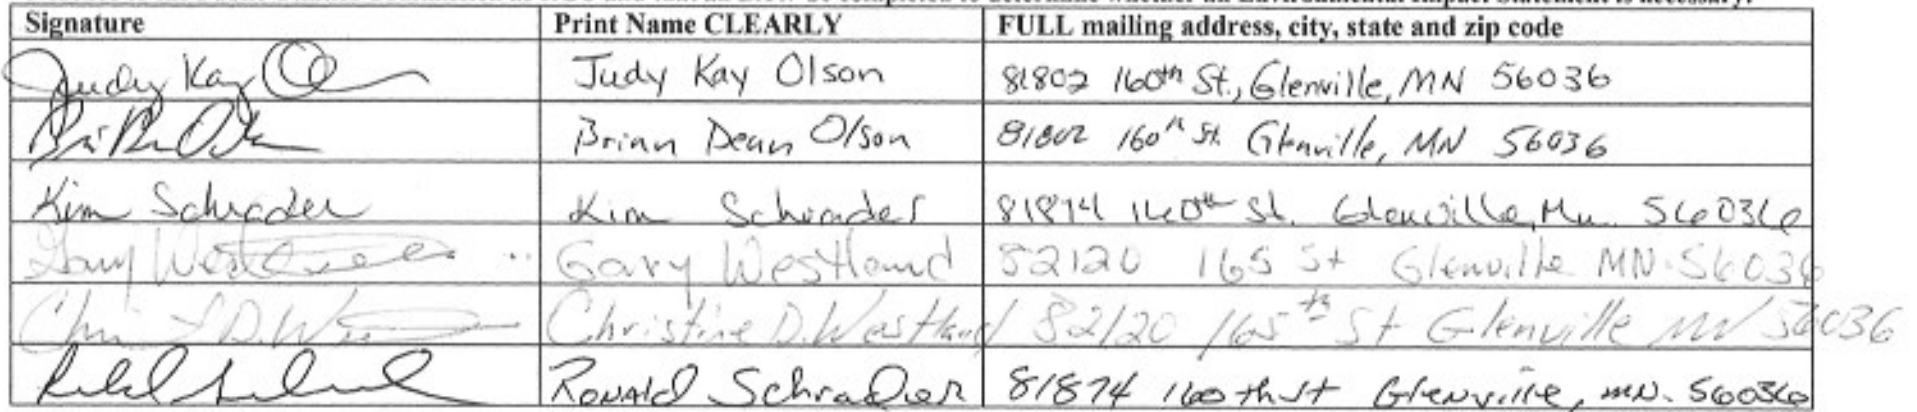 Signature Print Name CLEARLY FULL mailing address, city, state and zip code
Judy Kay Ol Judy Kay Olson 81802 160th St., Glenville, MN 56036
Brian Dean Olson 81802 160th St. Glenville, MN 56036
Kim Schrader Kim Schrader 81874 160th St. Glenville, Mn. 56036
Gary Westland Gary Westland 82120 165 St Glenville MN. 56036
Christine D. Westland 82120 165th St Glenville MN 56036
Ronald Schrader 81874 160th St Glenville, MN. 56036